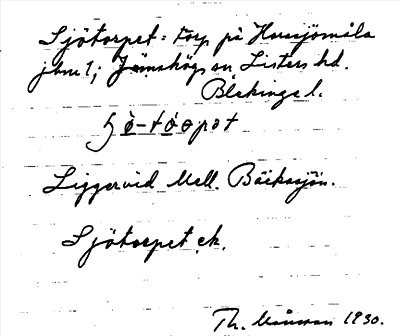 Sjötorpet: torp på Hunsjömåla
jbnr 1; Jämshögs sn Listers hd.
Blekinge l.
Liggervid Mell. Bäckasjön.
Sjötorpet ek.
Th. Månsson 1930.